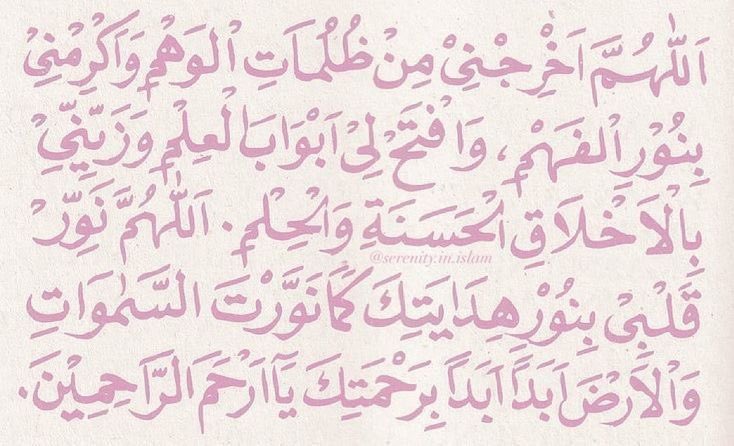 اَللّٰهُمَّ اَخْرِجْنِيْ مِنْ ظُلُمَاتِ الْوَهْمِ وَاَكْرِمْنِيْ
بِنُوْرِ الْفَهْمِ، وَافْتَحْ لِيْ اَبْوَابَ الْعِلْمِ وَزَيِّنِّيْ
بِالْاَخْلَاقِ الْحَسَنَةِ وَالْحِلْمِ. اَللّٰهُمَّ نَوِّرْ
@serenity.in.islam
قَلْبِيْ بِنُوْرِ هِدَايَتِكَ كَمَا نَوَّرْتَ السَّمٰوَاتِ
وَالْاَرْضَ اَبَدًا اَبَدًا بِرَحْمَتِكَ يَآ اَرْحَمَ الرَّاحِمِيْنَ.